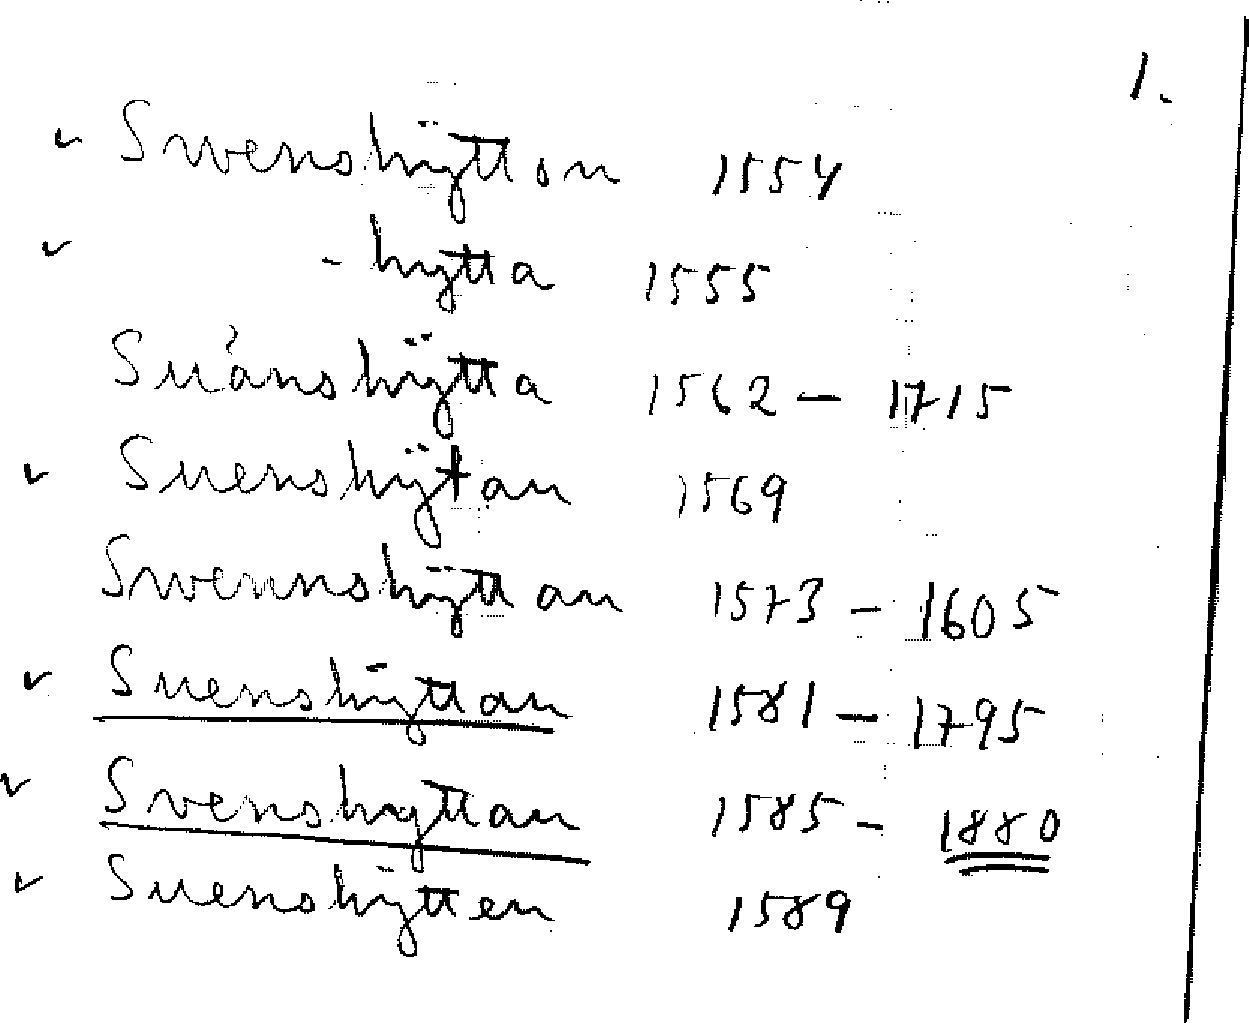 1.
✓ Swenshÿtton 1554
✓ - hytta 1555
Suånshÿtta 1562 – 1715
✓ Suenshÿtan 1569
Swennshÿttan 1573 – 1605
✓ Suenshÿttan 1581 – 1795
✓ Svenshyttan 1585 – 1880
✓ Suenshÿtten 1589